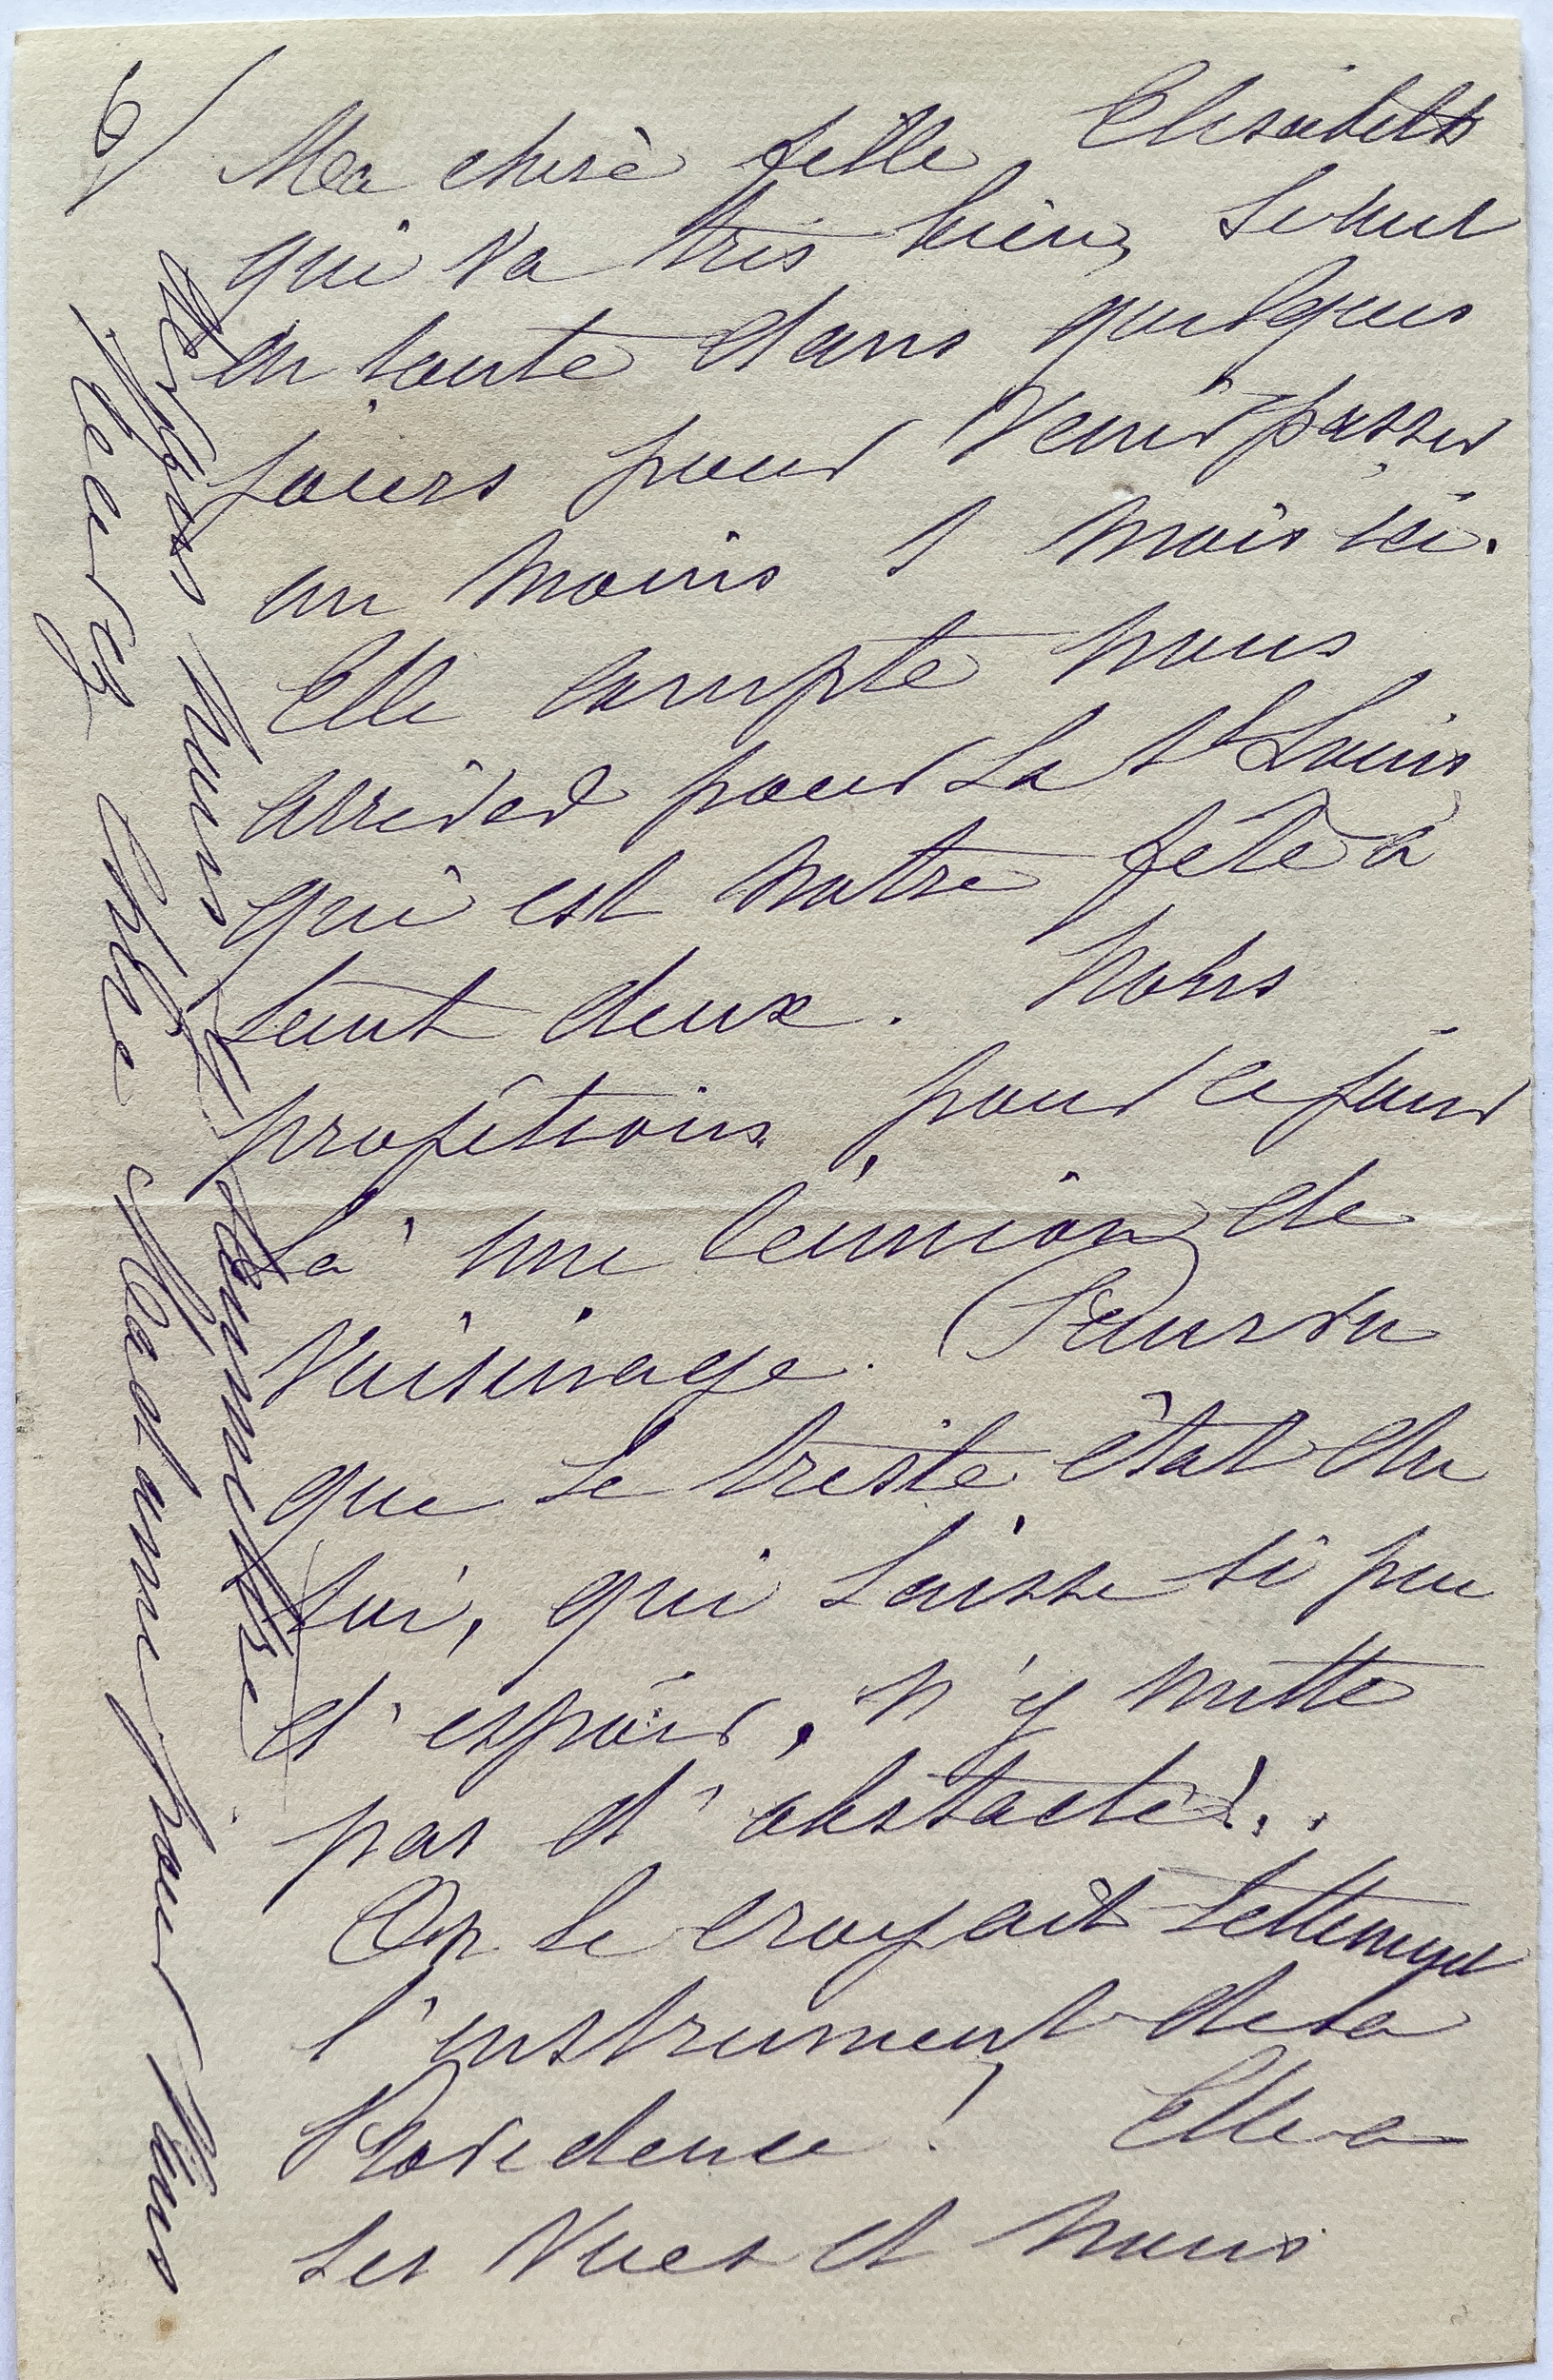 9/
Ma chère fille Elisabeth
qui va très bien, se met
en route dans quelques
jours pour venir passer
au moins 1 mois ici.
Elle compte nous
arriver pour la St Louis
qui est notre fête à
tout deux. Nous
profitions, pour ce jour
là, une réunion de
voisinage. Pourvu
que le triste état du
Roi, qui laisse si peu
d'espoir, n'y mette
pas d'obstacle!..
On le croyait tellement
l'instrument de la
Providence! Elle a
ses vues et nous
les pouvons
soumettre
chère Madame pour vous